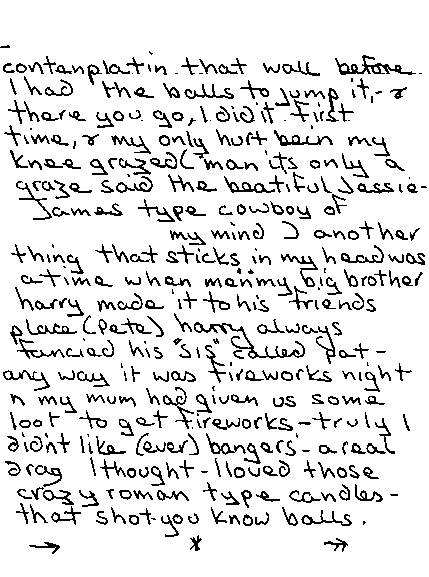 contenplatin that wall before
I had the balls to jump it,- &
there you go, I did it first
time, & my only hurt bein my
knee grazed ("man its only a
graze said the beatiful Jessie-
James type cowboy of
my mind) another
thing that sticks in my head was
a time when me n my big brother
harry made it to his friends
place (Pete) harry always
fancied his "sis" called pat-
any way it was fireworks night
n my mum had given us some
loot to get fireworks - truly I
didnt like (ever) bangers - a real
drag I thought - I loved those
crazy roman type candles -
that shot-you know balls.